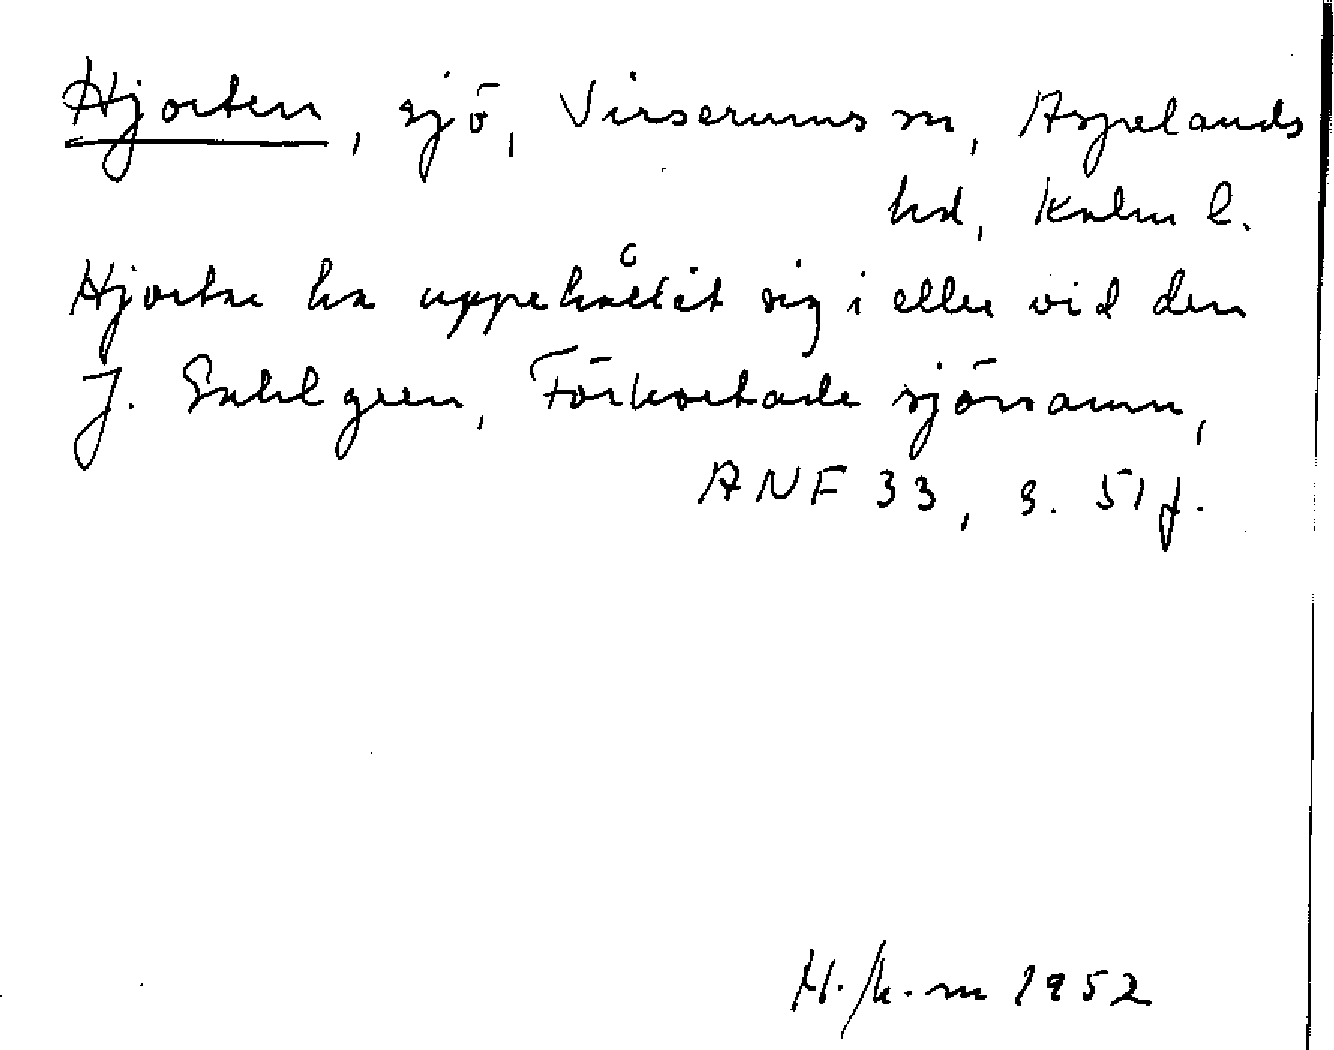 Hjorten, sjö, Virserums sn, Aspelands
hd, Kalm l.
Hjortar ha uppehållit sig i eller vid den
J. Sahlgren, Förkortade sjönamn,
ANF 33, s. 51 f.
1952